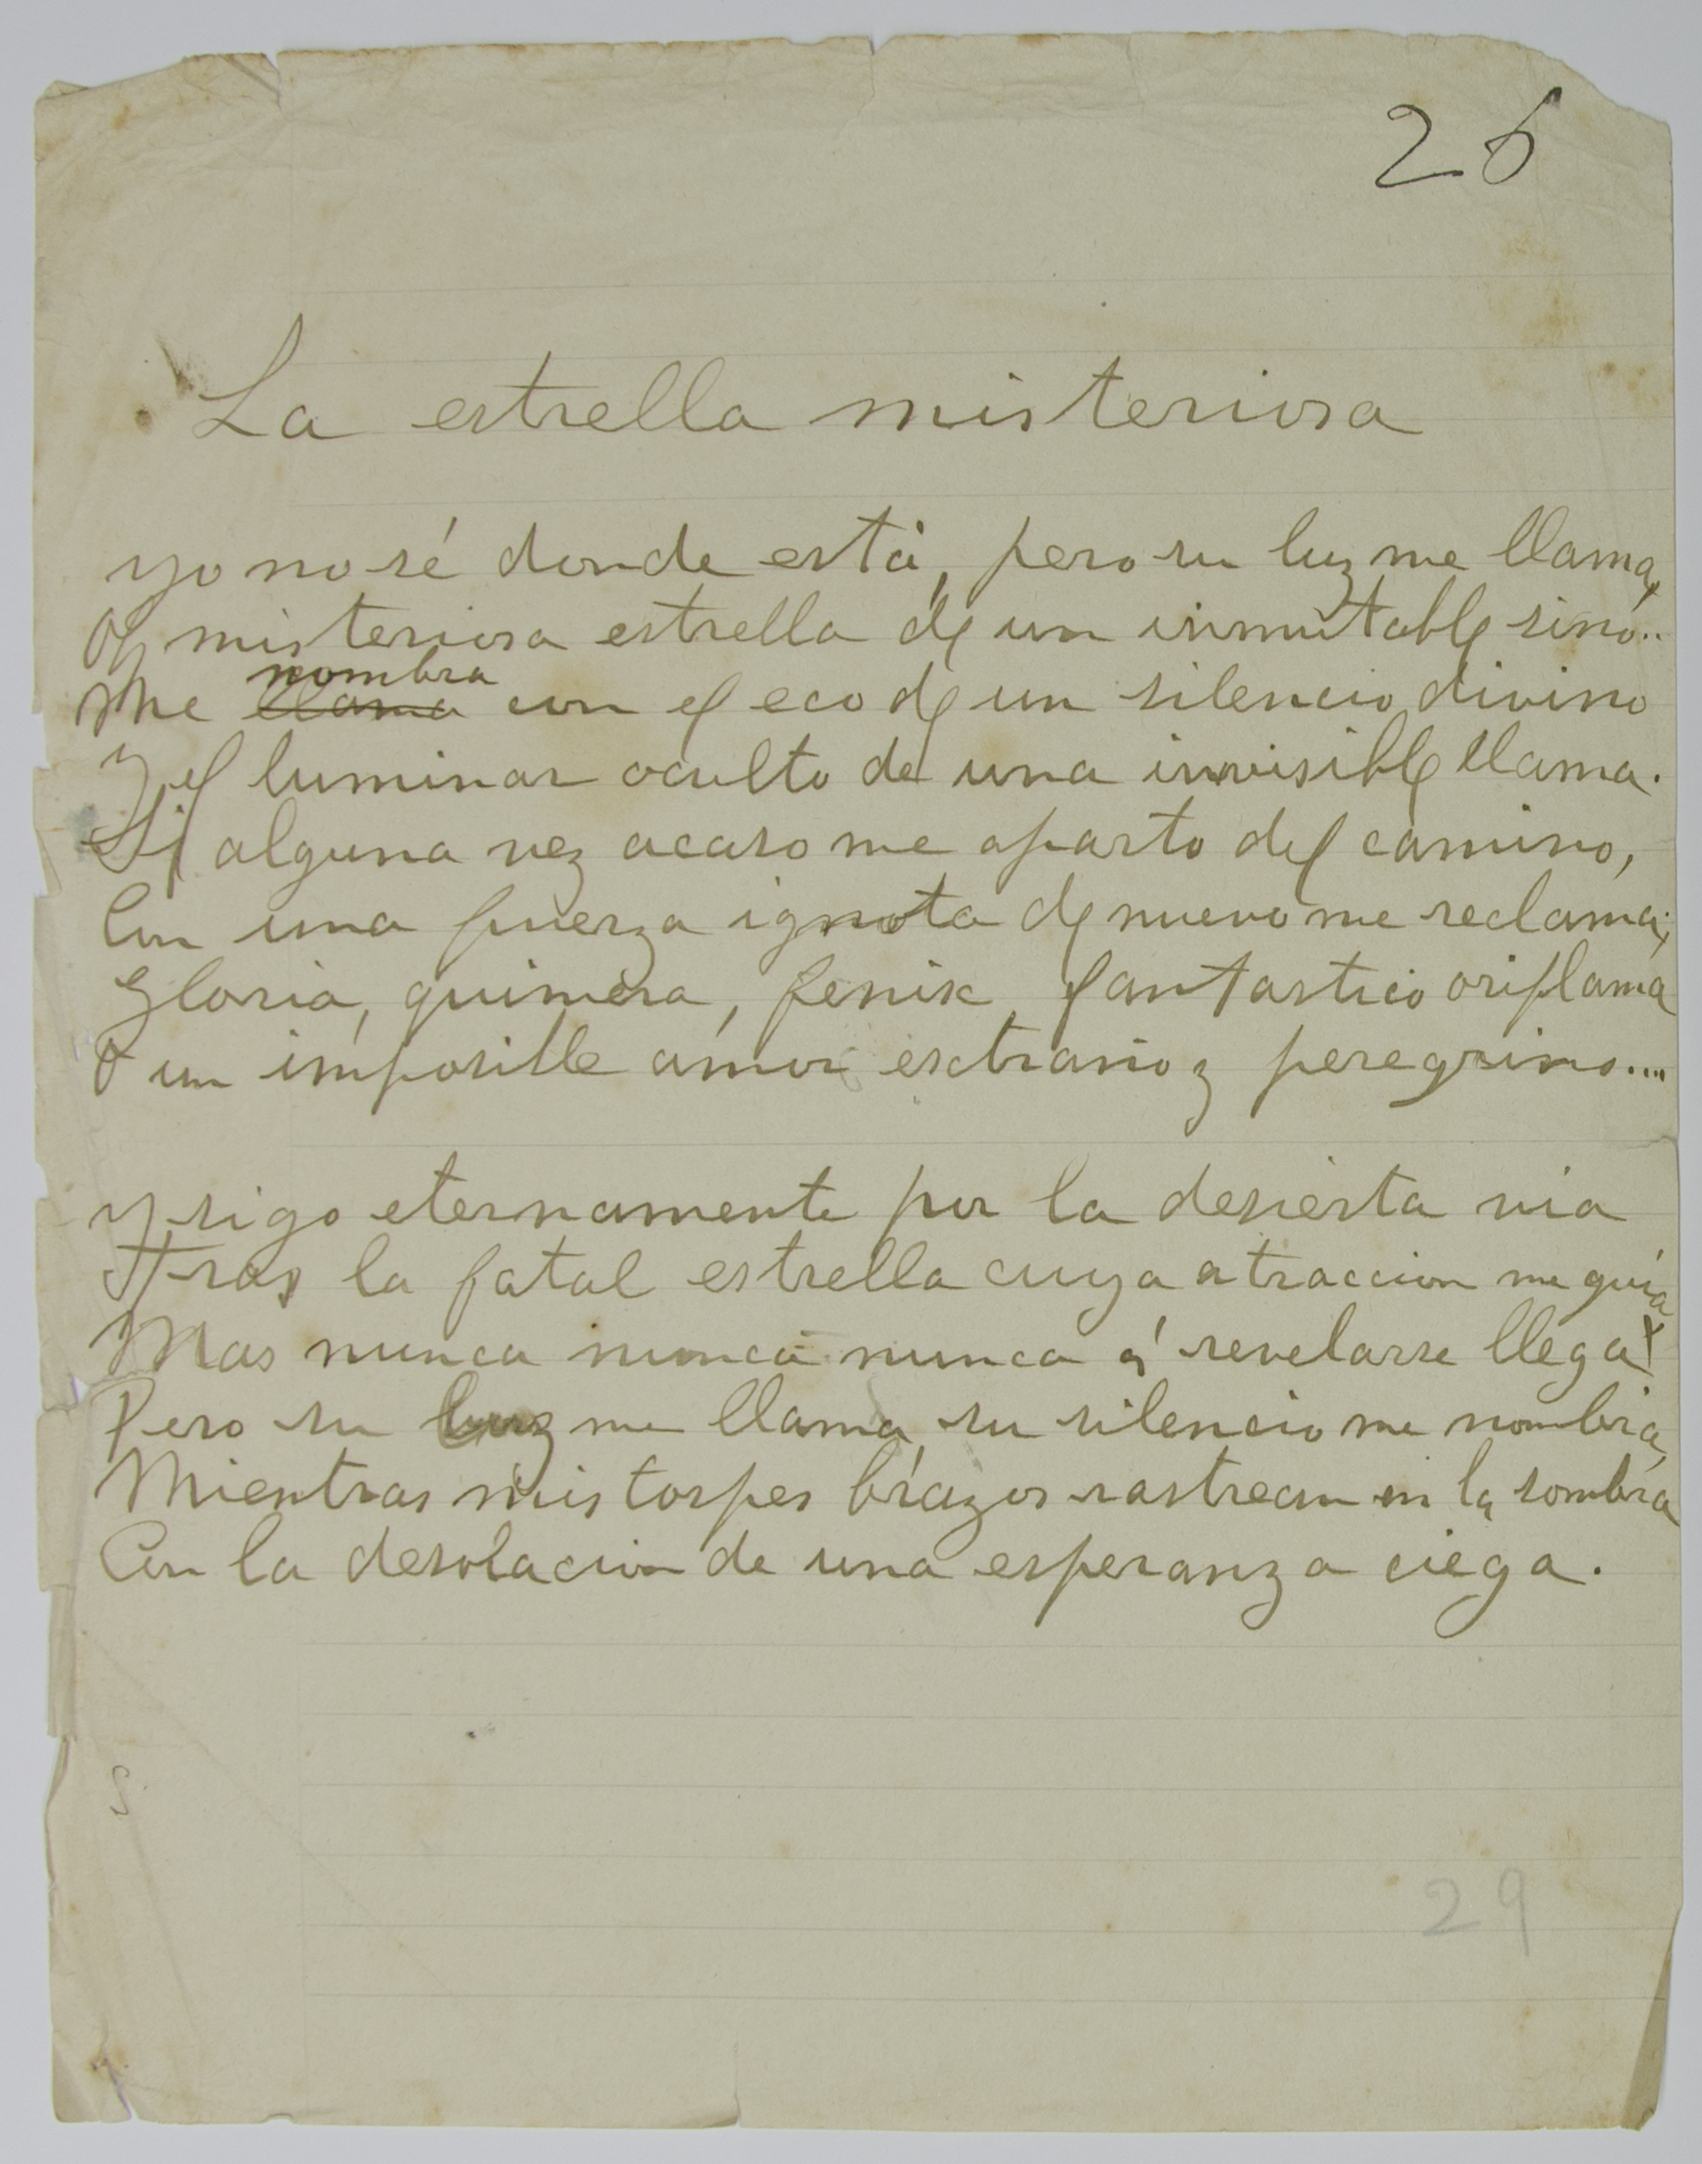 26
La estrella misteriosa
yo no sé donde está, pero su luz me llama,
Oh misteriosa estrella de un inmutable sino..
Me llama nombra con el eco de un silencio divino
Y el luminar oculto de una invisible llama.
Si alguna vez acaso me aparto del camino,
Con una fuerza ignota de nuevo me reclama;
Gloria, quimera, fenix, fantastico oriflama
O un imposible amor extraño y peregrino....
Y sigo eternamente por la desierta via
Tras la fatal estrella cuya atraccion me guia
Mas nunca nunca nunca á revelarse llega!
Pero su luz me llama, su silencio me nombra,
Mientras mis torpes brazos rastrean en la sombra
Con la desolacion de una esperanza ciega.
29